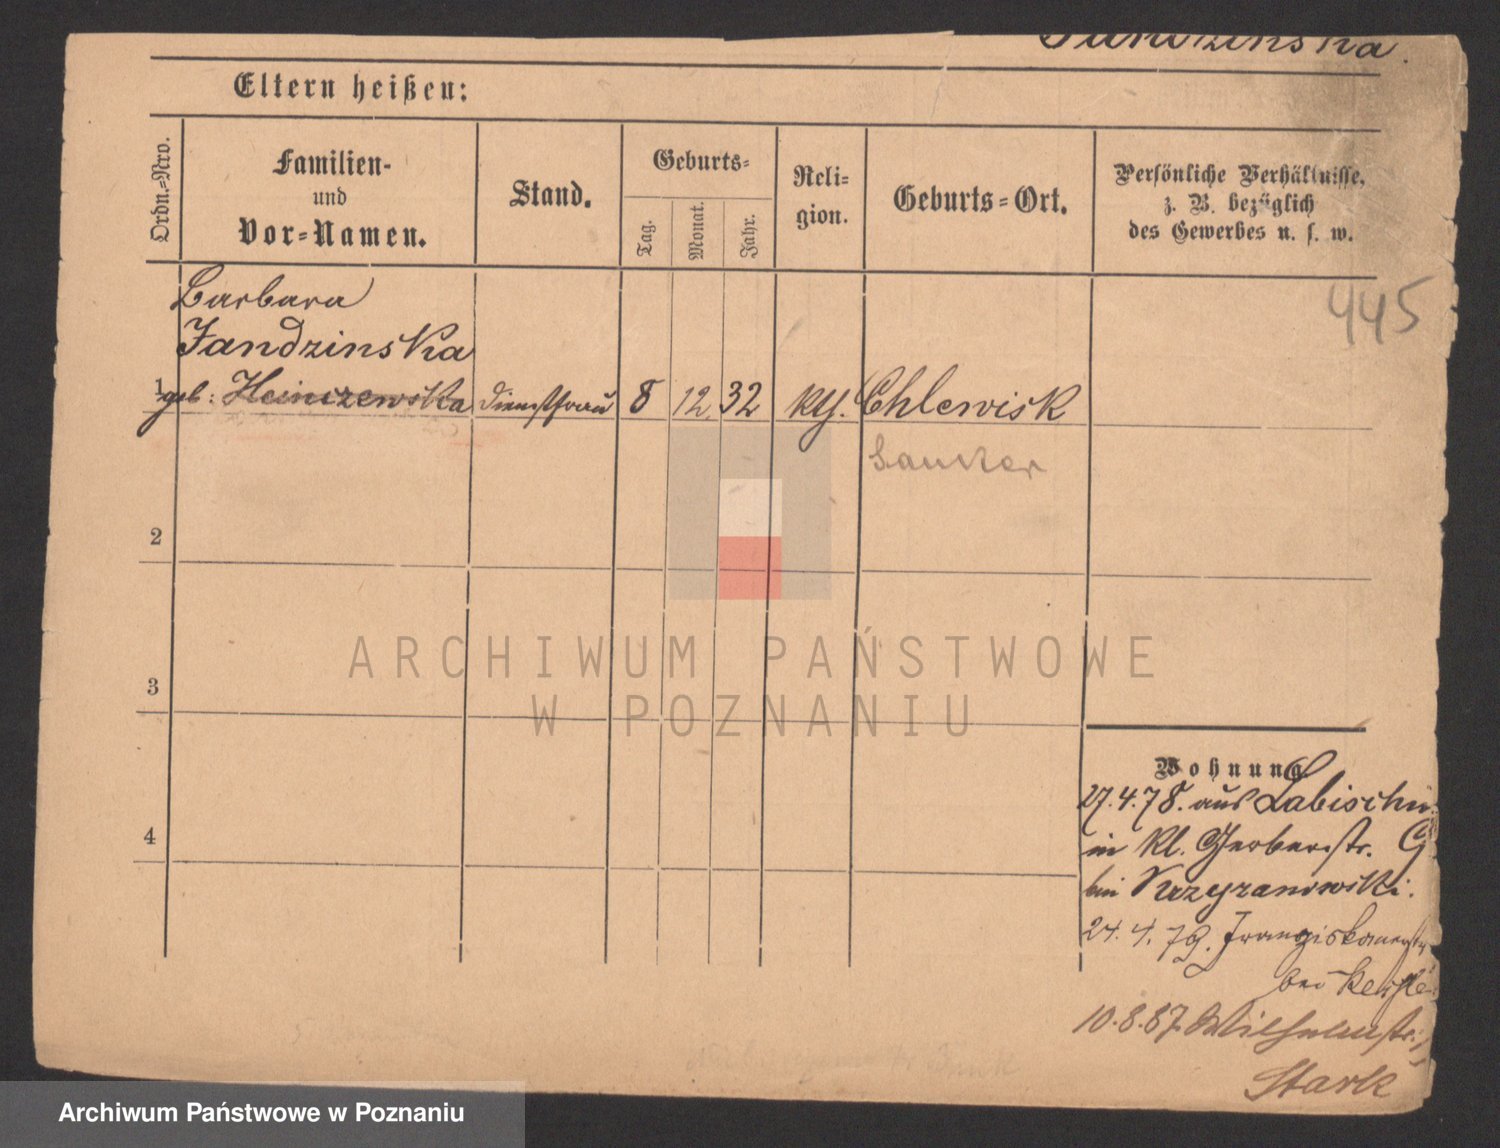 Jandzinska.
Eltern heißen:
Ordn.=Nro.
Familien-
und
Vor=Namen.
Stand.
Geburts=
Tag.
Monat.
Jahr.
Reli=
gion.
Geburts=Ort.
Persönliche Verhältnisse,
z. B. bezüglich
des Gewerbes u. s. w.
445
Barbara
Jandzinska
1 geb: Heinczewska Dienstfrau 8 12 32 kth. Chlewisk
Samter
2
3
4
Wohnung.
27.4.78. aus Labischin
in kl. Gerberstr. 9
bei Krzyzanowski.
24.4.79. Franziskanerstr
bei
10.8.87. Wilhelmstr.
Stark
ARCHIWUM PAŃSTWOWE
W POZNANIU
Archiwum Państwowe w Poznaniu